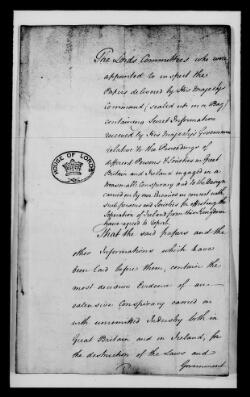 The Lords Committees who were
appointed to inspect the
Papers delivered by His Majesty's
Command (sealed up in a Bag)
containing Secret Information
received by His Majesty's Government
relative to the Proceedings of
different Persons & Societies in Great
Britain and Ireland engaged in a
treasonable Conspiracy and to the Design
carried on by our Enemies in concert with
such Persons and Societies for effecting the
Separation of Ireland from this Kingdom
have agreed to report
HOUSE OF LORDS
That the said papers and the
other Informations which have
been laid before them, contain the
most decisive Evidence of an
extensive Conspiracy carried on
with unremitted Industry both in
Great Britain and in Ireland, for
the destruction of the Laws and
Government